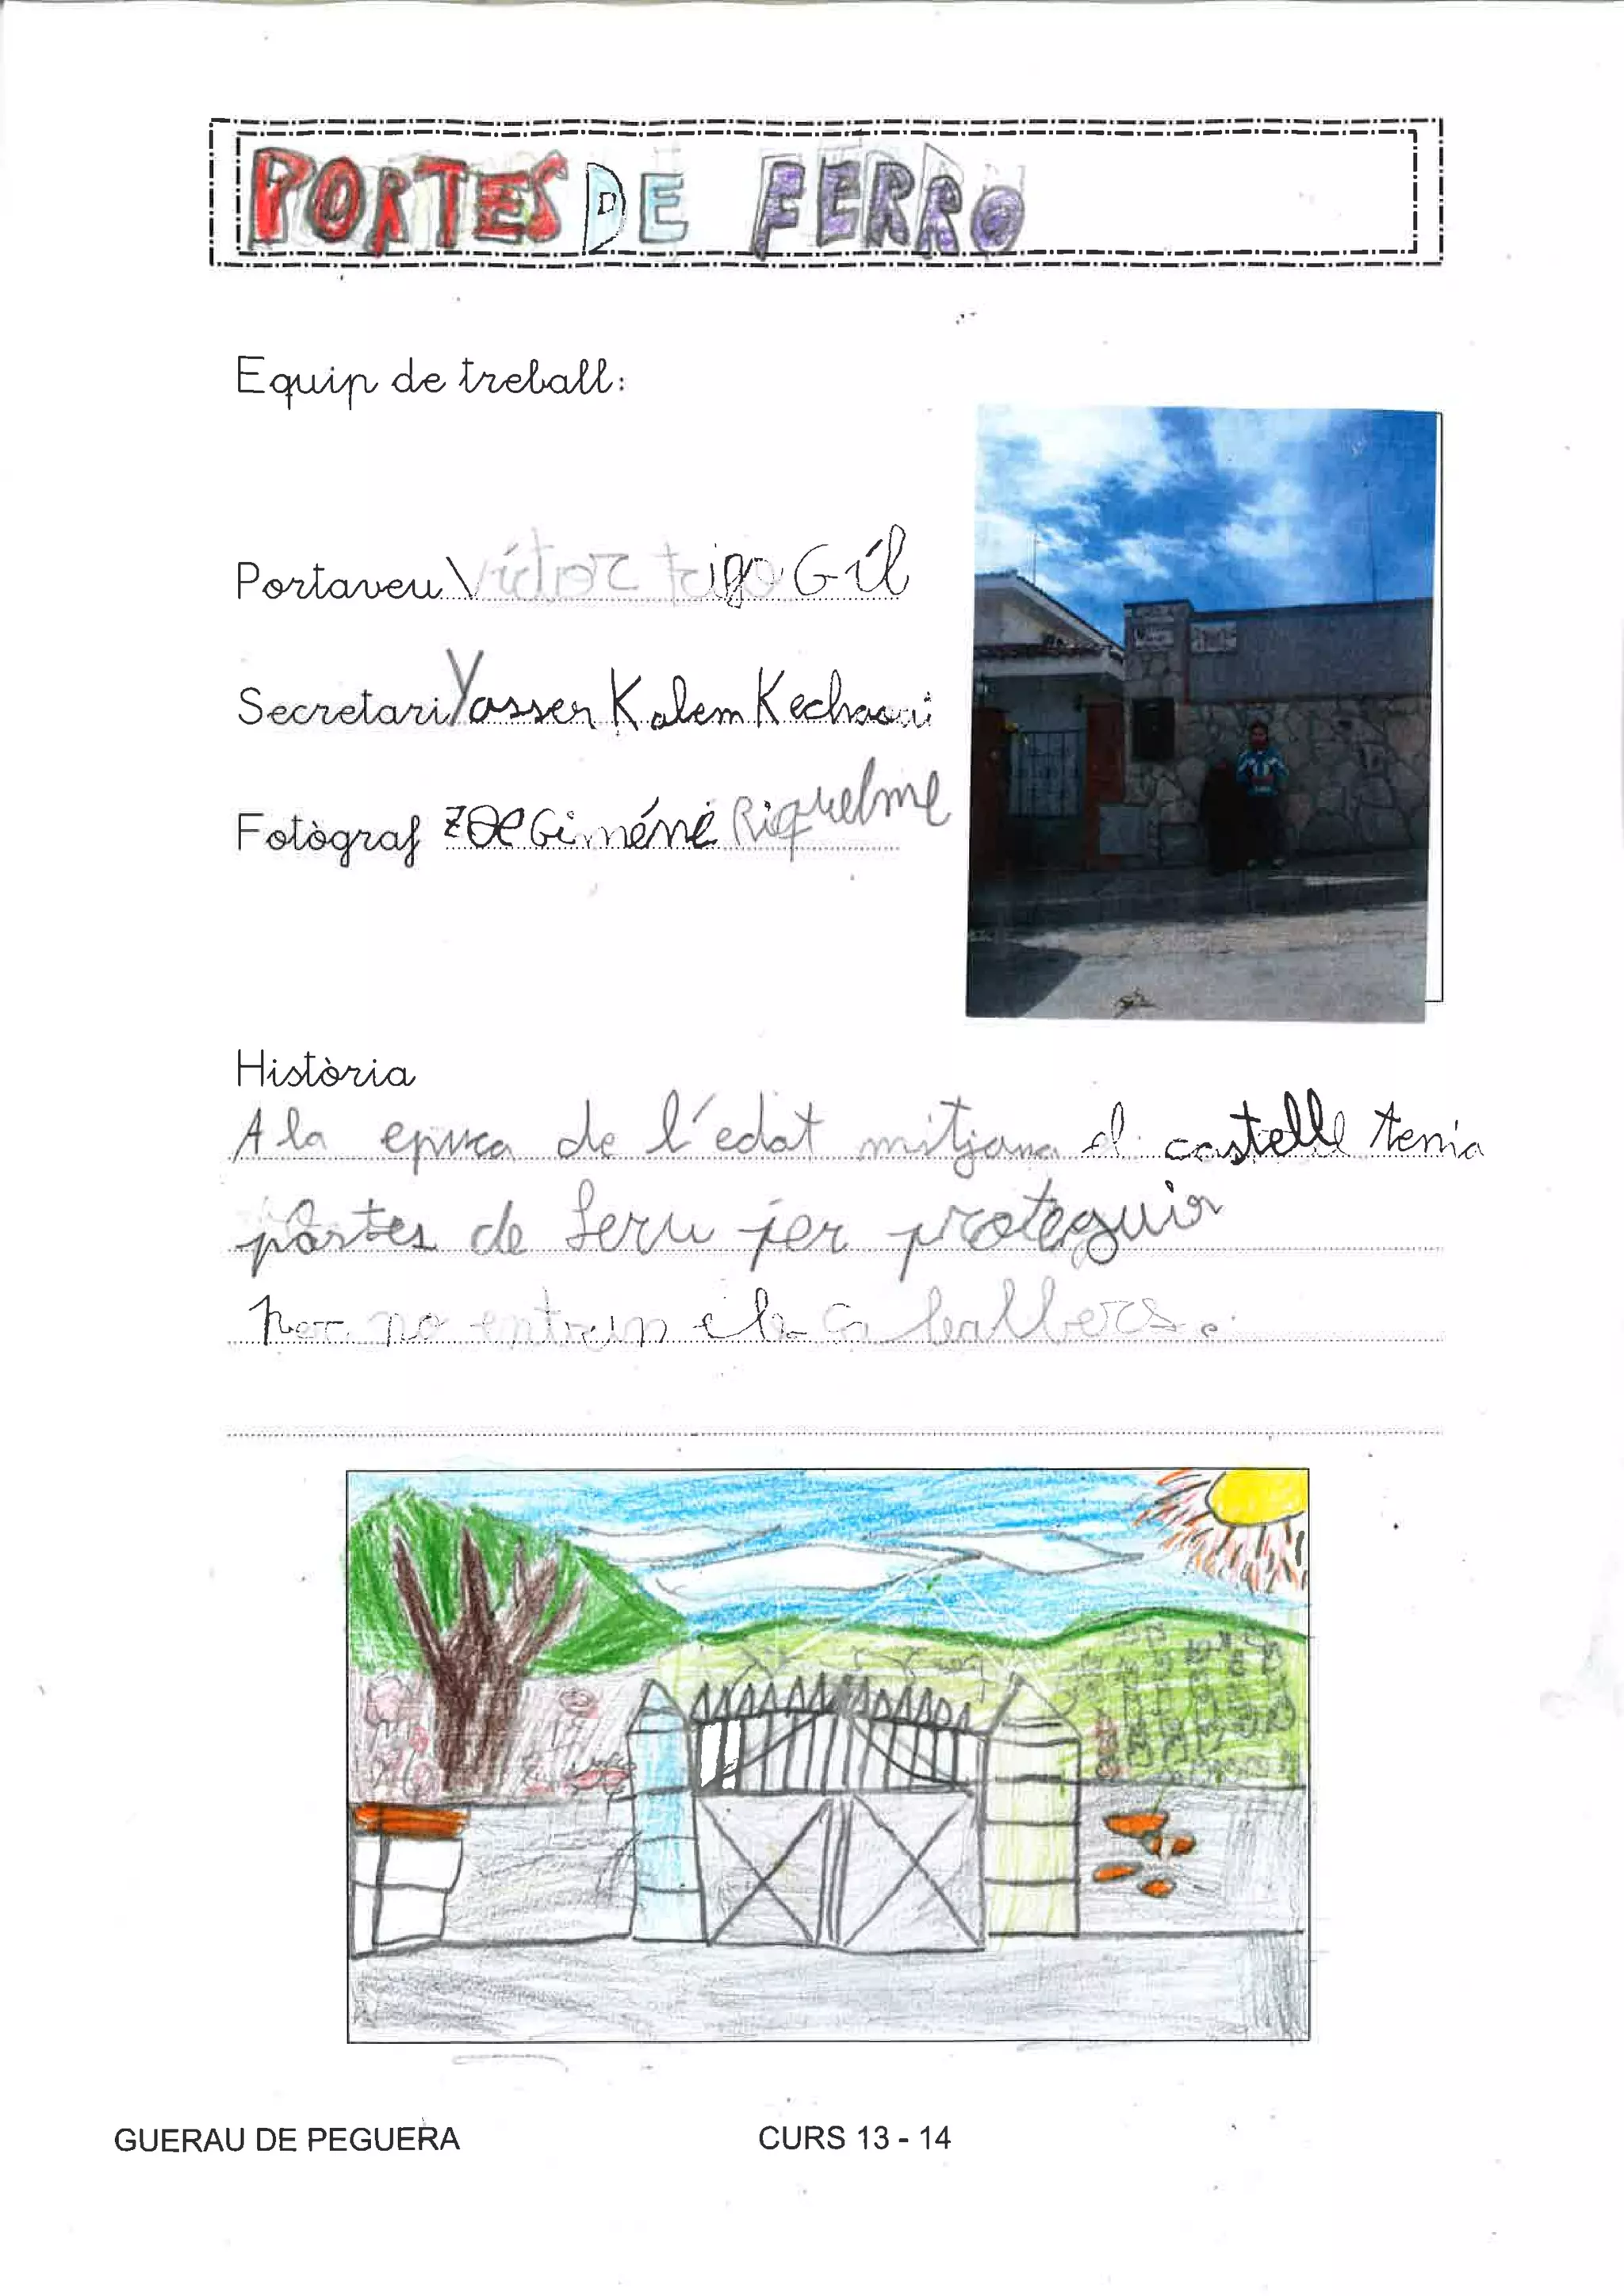 PORTES DE FERRO
Equip de treball:
Portaveu Víctor trigo Gíl
Secretari Yasser Kalem Kechaoui
Fotògraf ZOE Giméne Riquelme
Història
A la epuca de l'edat mitjana el castell tenia
portes de ferru per proteguir
per no entrin els caballers.
GUERAU DE PEGUERA
CURS 13 - 14